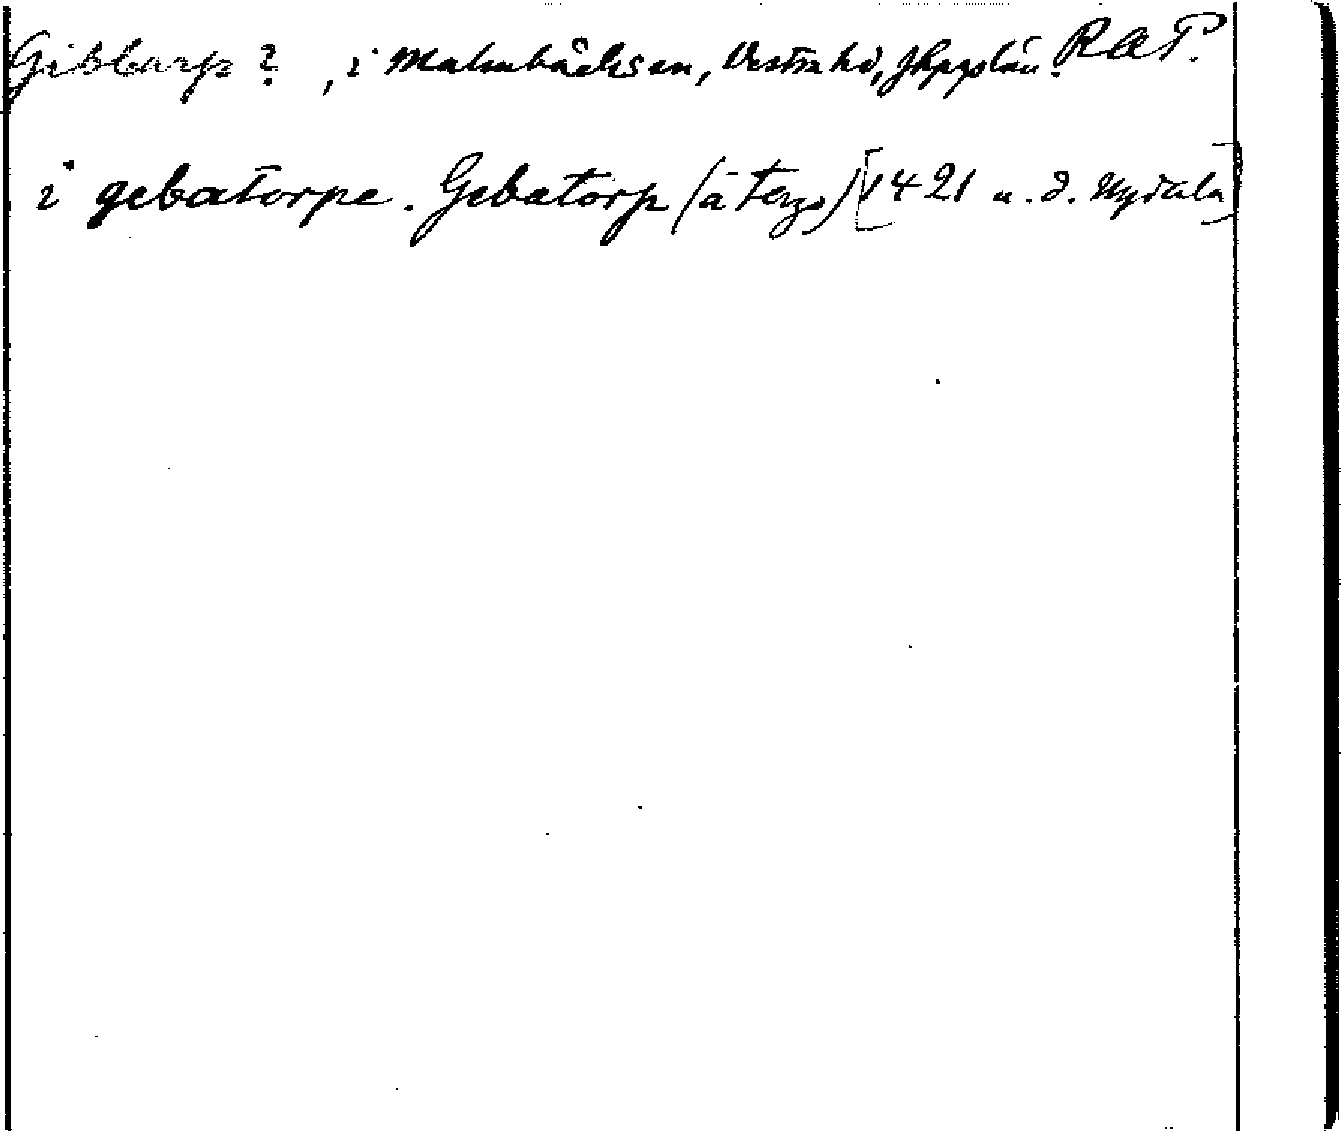 Gibbarp? , i Malmbäcks sn, Vestra hd, Jkpgs län. RAP.
i gebatorpe. Gebatorp (a tergo) [1421 u. d. Nydala]